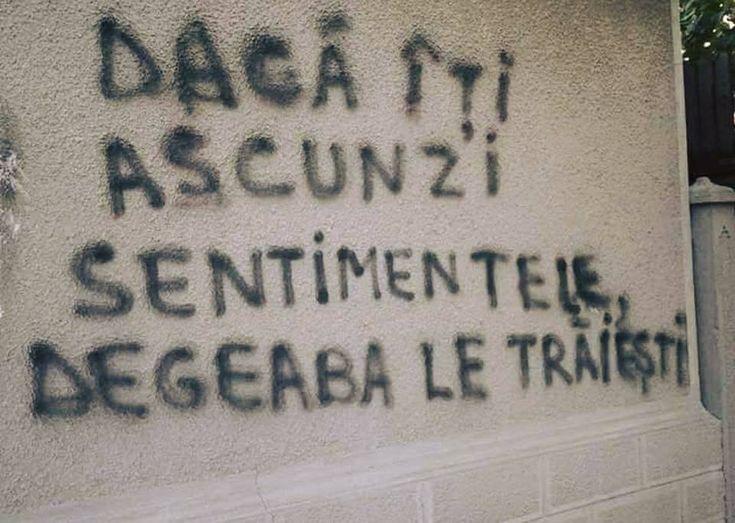 DACĂ ÎȚI
ASCUNZI
SENTIMENTELE,
DEGEABA LE TRĂIEȘTI